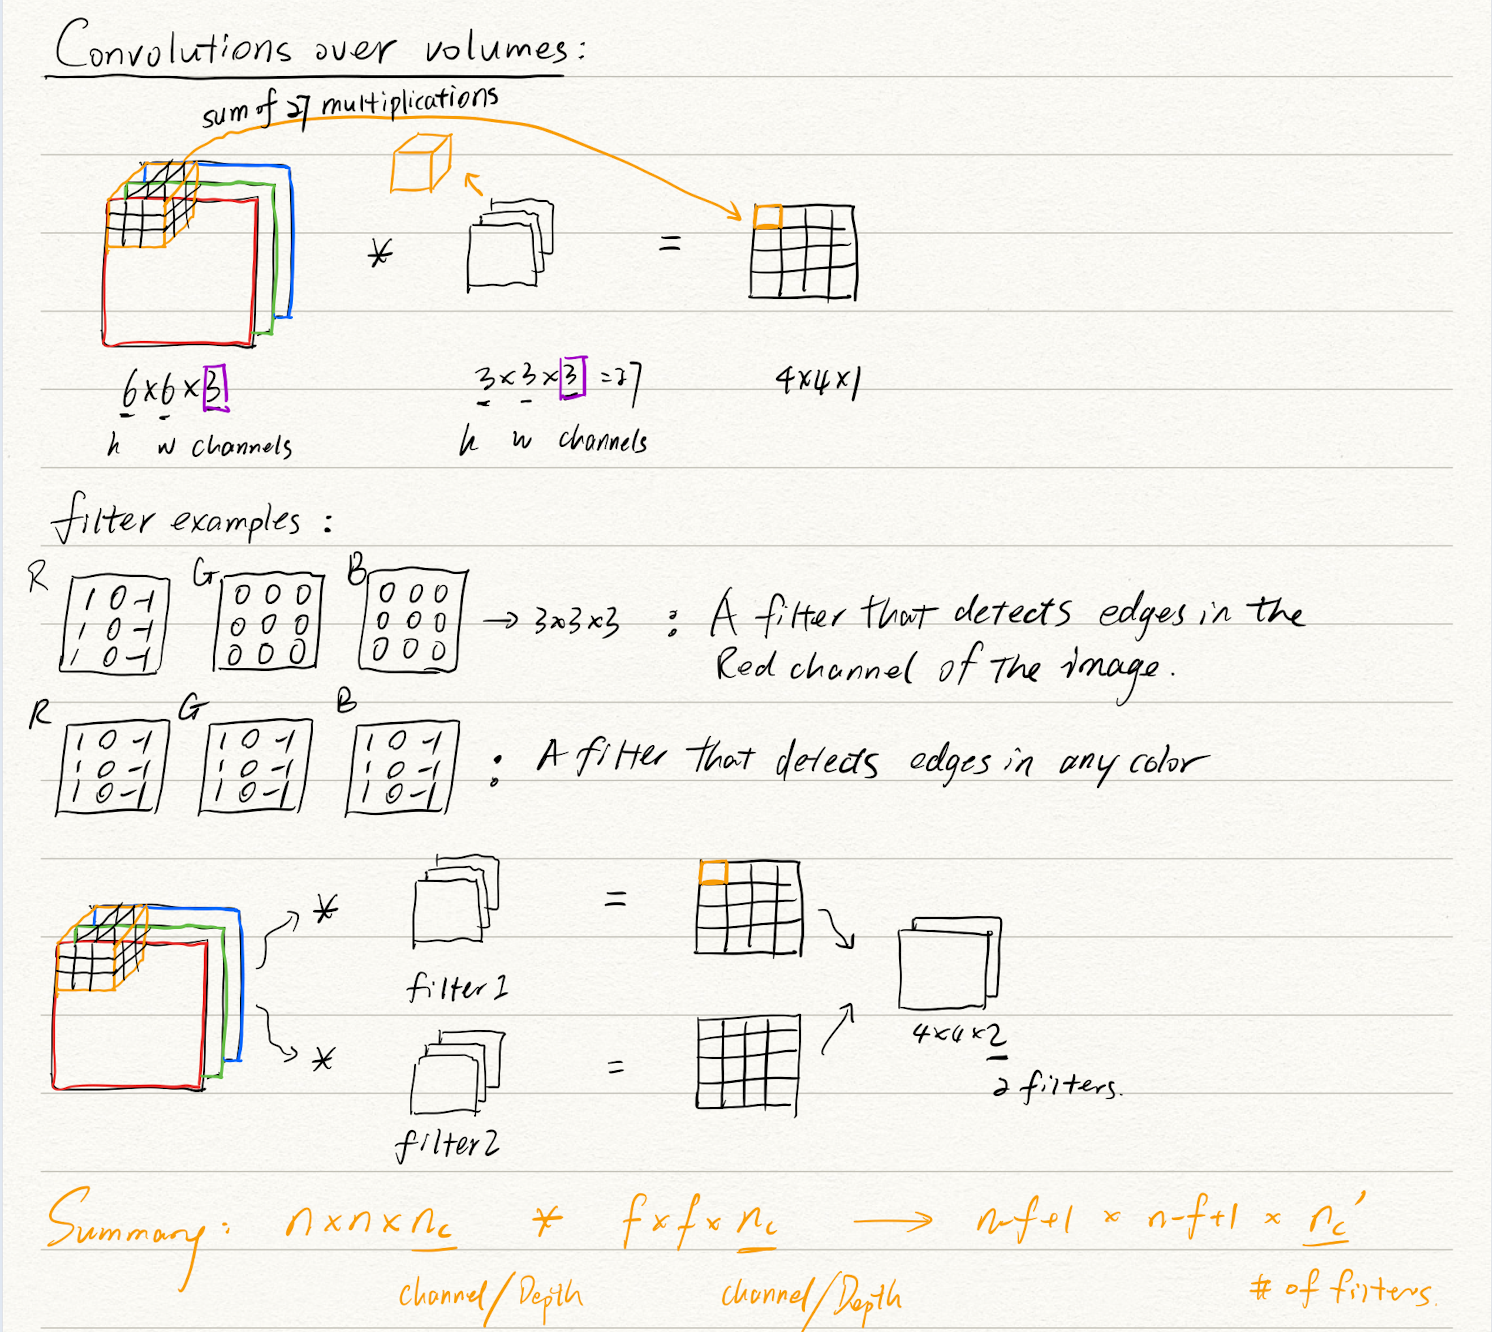 Convolutions over volumes:
sum of 27 multiplications
* =
6×6×3 3×3×3 =27 4×4×1
h w channels h w channels
filter examples :
R G B
1 0 -1 0 0 0 0 0 0
1 0 -1 0 0 0 0 0 0 → 3×3×3 : A filter that detects edges in the
1 0 -1 0 0 0 0 0 0 Red channel of the image.
R G B
1 0 -1 1 0 -1 1 0 -1
1 0 -1 1 0 -1 1 0 -1 : A filter that detects edges in any color
1 0 -1 1 0 -1 1 0 -1
* =
filter 1
4×4×2
* =
2 filters.
filter 2
Summary: n×n×nc * f×f×nc → n-f+1 × n-f+1 × nc'
channel/Depth channel/Depth # of filters.